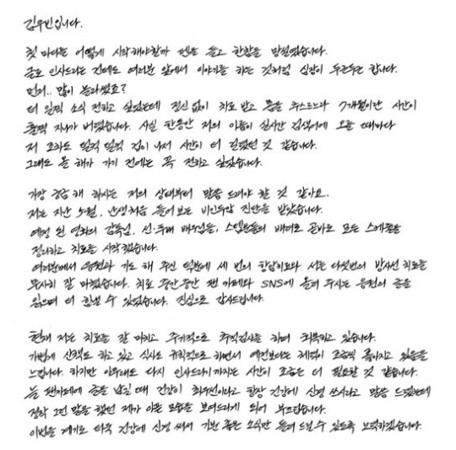 김우빈입니다.
첫 마디를 어떻게 시작해야할까 펜을 들고 한참을 망설였습니다.
글로 인사드리는 건데도 여러분 앞에서 이야기를 하는 것처럼 심장이 두근두근 합니다.
먼저.. 많이 놀라셨죠?
더 일찍 소식 전하고 싶었는데 정신 없이 치료 받고 몸을 추스르느라 7개월이란 시간이
훌쩍 지나가 버렸습니다. 사실 한동안 저의 이름이 실시간 검색어에 오를 때마다
저 조차도 덜컥 덜컥 겁이 나서 시간이 더 걸렸던 것 같습니다.
그래도 올 해가 가기 전에는 꼭 전하고 싶었습니다.
가장 궁금해 하시는 저의 상태부터 말씀 드려야 할 것 같아요..
저는 지난 5월, 난생처음 들어보는 비인두암 진단을 받았습니다.
예정 된 영화의 감독님, 선·후배 배우분들, 스탭분들의 배려로 곧바로 모든 스케줄을
정리하고 치료를 시작했습니다.
여러분께서 응원과 기도 해 주신 덕분에 세 번의 항암치료와 서른 다섯번의 방사선 치료를
무사히 잘 마쳤습니다. 치료 중간중간 팬 카페와 SNS에 올려 주시는 응원의 글을
읽으며 더 힘낼 수 있었습니다. 진심으로 감사드립니다.
현재 저는 치료를 잘 마치고 주기적으로 추적검사를 하며 회복하고 있습니다.
가볍게 산책도 하고 있고 식사도 규칙적으로 하면서 예전보다는 체력이 조금씩 좋아지고 있음을
느낍니다. 하지만 아무래도 다시 인사드리기까지는 시간이 조금은 더 필요할 것 같습니다.
늘 팬카페에 글을 남길 때 건강이 최우선이라고 항상 건강에 신경 쓰시라고 말씀 드렸는데
정작 그런 말을 했던 제가 아픈 모습을 보여드리게 되어 부끄럽습니다.
이번을 계기로 더욱 건강에 신경 써서 기쁘고 좋은 소식만 들려 드릴 수 있도록 노력하겠습니다.